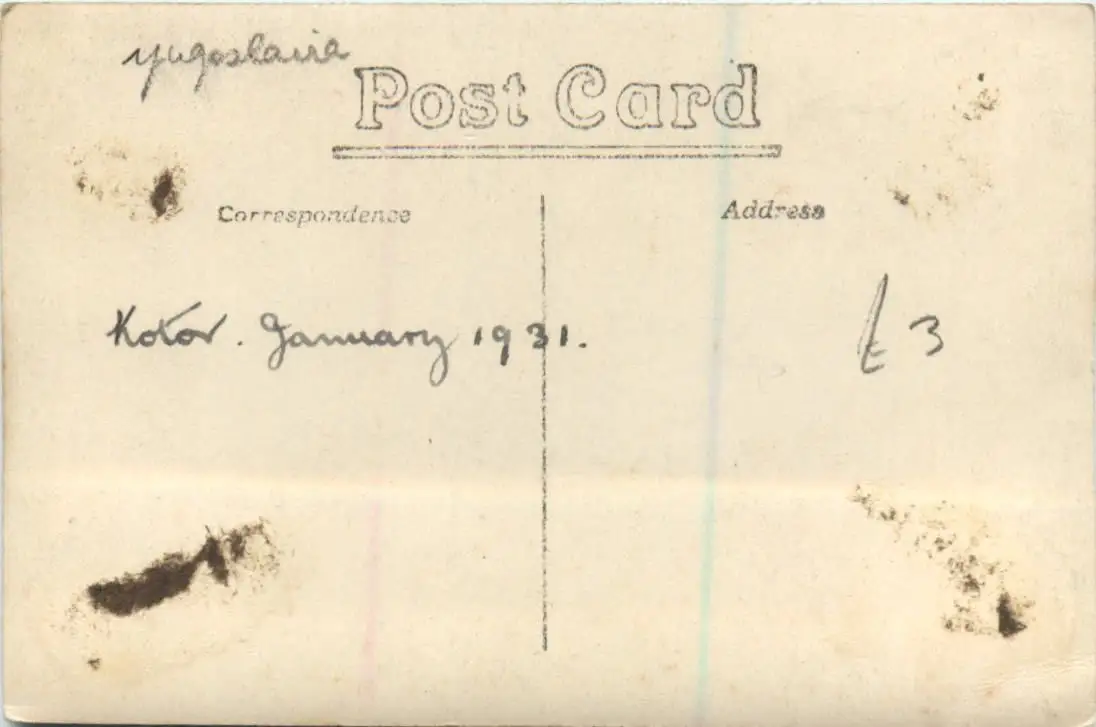 Yugoslavia
Post Card
Correspondence
Address
Kotor. January 1931.
£3